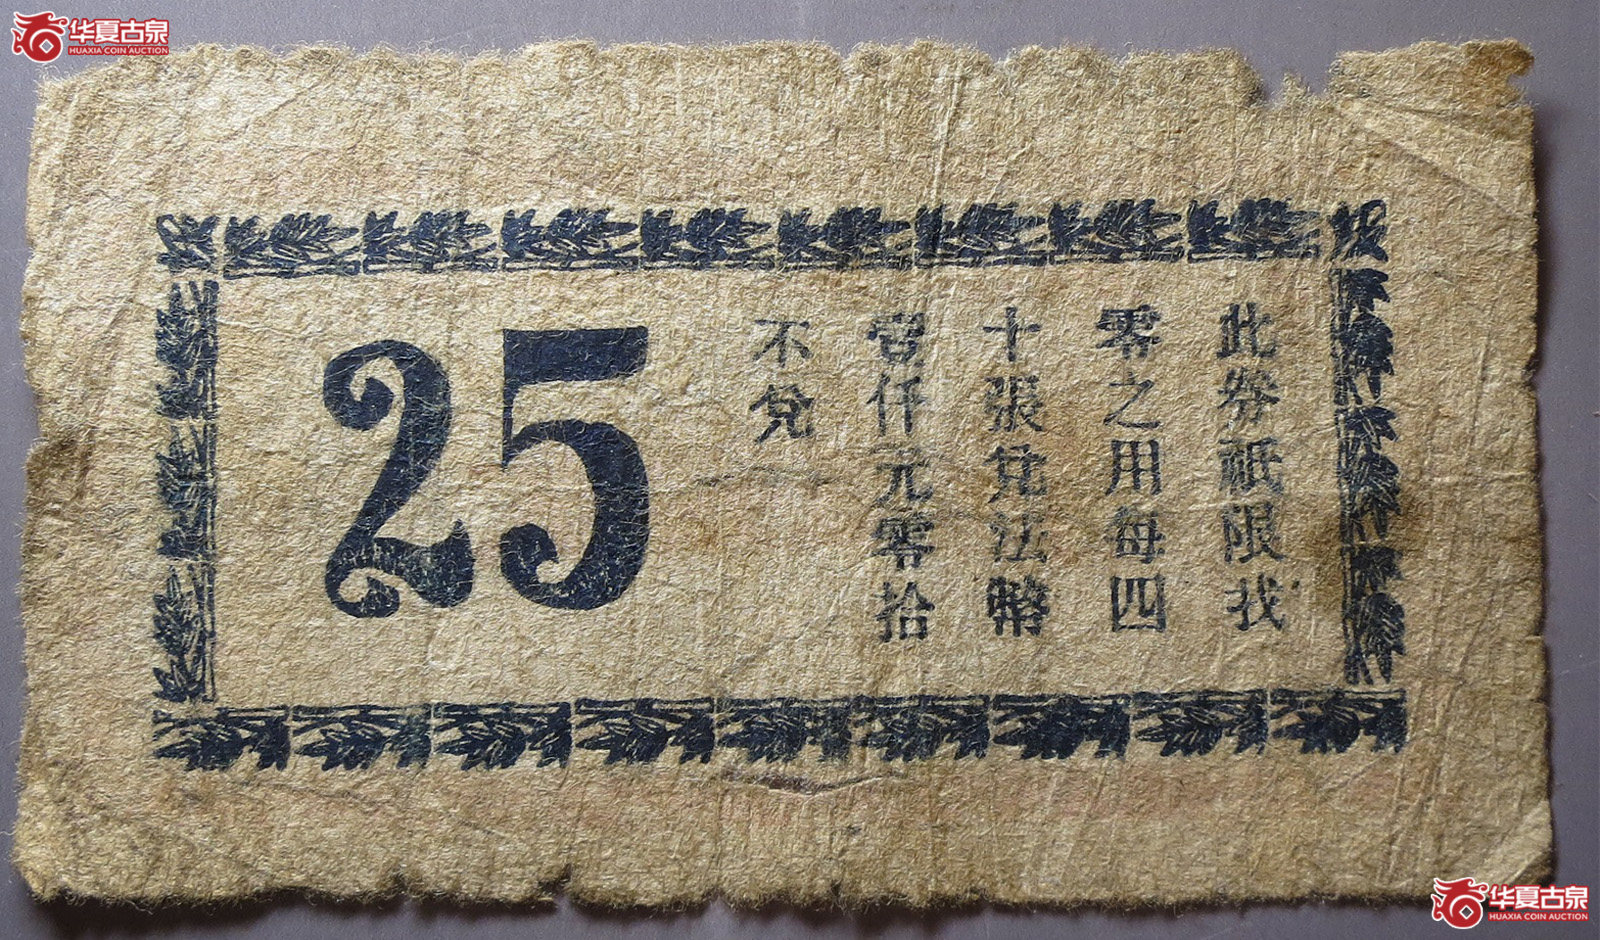 华夏古泉
HUAXIA COIN AUCTION
此券祇限找
零之用每四
十張兌法幣
壹仟元零拾
不兌
25
华夏古泉
HUAXIA COIN AUCTION